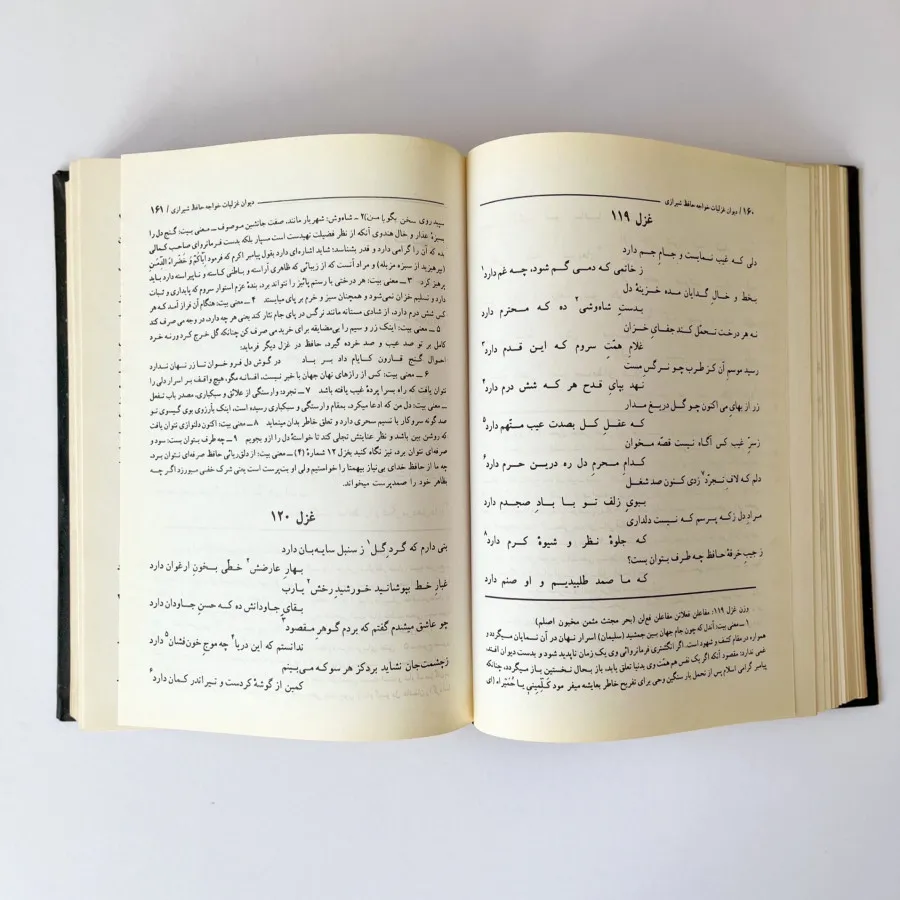 ۱۶۰ / دیوان غزلیات خواجه حافظ شیرازی
غزل ۱۱۹
دلی که غیب نمایست و جامِ جم دارد
ز خاتمی که دمی گم شود، چه غم دارد۱
بخط و خالِ گدایان مده خزینهٔ دل
بدستِ شاه‌وشی۲ ده که محترم دارد
نه هر درخت تحمّل کند جفایِ خزان
غلامِ همّتِ سروم که این قدم دارد۳
رسید موسمِ آن کز طرب چو نرگسِ مست
نهد بپایِ قدح هر که شش درم دارد۴
زر از بهایِ می اکنون چو گل دریغ مدار
که عقلِ کل بصدت عیب متّهم دارد۵
ز سرِّ غیب کس آگاه نیست قصّه مخوان
کدام محرمِ دل ره درین حرم دارد۶
دلم که لافِ تجرد۷ زدی کنون صد شغل
ببویِ زلفِ تو با بادِ صبحدم دارد
مرادِ دل ز که پرسم که نیست دلداری
که جلوهٔ نظر و شیوهٔ کرم دارد۸
ز جیبِ خرقهٔ حافظ چه طرف بتوان بست؟
که ما صمد طلبیدیم و او صنم دارد
وزن غزل ۱۱۹: مفاعلن فعلاتن مفاعلن فع‌لن (بحر مجتث مثمن مخبون اصلم)
۱ ــ معنی بیت: آندل که چون جام جهان بین جمشید (سلیمان) اسرار نهان در آن نمایان میگردد و
همواره در مقام کشف و شهود است، اگر انگشتری فرمانروائی وی یک زمان ناپدید شود و بدست دیوان افتد،
غمی ندارد؛ مقصود آنکه اگر یک نفس هم همّت وی بدنیا تعلق یابد، باز بحال نخستین باز میگردد، چنانکه
پیامبر گرامی اسلام پس از تحمل بار سنگین وحی برای تفریح خاطر بعایشه میفرمود کَلِّمینِی یا حُمَیراء (ای
دیوان غزلیات خواجه حافظ شیرازی / ۱۶۱
سپید روی سخن بگو با من) ۲ــ شاه‌وش: شهریار مانند، صفت جانشین موصوف ــ معنی بیت: گنج دل را
بسبزهٔ عذار و خال هندوی آنکه از نظر فضیلت تهیدست است مسپار بلکه بدست فرمانروای صاحب کمالی
بده که آن را گرامی دارد و قدر بشناسد؛ شاید اشاره‌ای دارد بقول پیامبر اکرم که فرمود اِیّاکُم وَ خَضراءَ الدِّمَنِ
(بپرهیزید از سبزه مزبله) و مراد آنست که از زیبائی که ظاهری آراسته و باطنی کاسته و ناپیراسته دارد باید
پرهیز کرد ۳ ــ معنی بیت: هر درختی با رستم پائیز را نتواند برد، بندهٔ عزم استوار سروم که پایداری و ثبات
دارد و تسلیم خزان نمی‌شود و همچنان سبز و خرم بر پای میایستد ۴ ــ معنی بیت: هنگام آن فراز آمد که هر
کس شش درم دارد، از شادی مستانه مانند نرگس در پای جام نثار کند یعنی هر چه دارد، در وجه می صرف کند
۵ ــ معنی بیت: اینک زر و سیم را بی‌مضایقه برای خرید می صرف کن چنانکه گل خرج کرد ورنه خرد
کامل بر تو صد عیب و صد خرده گیرد، حافظ در غزل دیگر فرماید:
احوال گنج قارون کایام داد بر باد در گوش دل فرو خوان تا زر نهان ندارد
۶ ــ معنی بیت: کس از رازهای نهان جهان با خبر نیست، افسانه مگو، هیچ واقف بر اسرار دلی را
نتوان یافت که راه بسراپردهٔ غیب یافته باشد ۷ ــ تجرد: وارستگی از علائق و سبکباری، مصدر باب تفعل
ــ معنی بیت: دل من که ادعا میکرد، بمقام وارستگی و سبکباری رسیده است، اینک بآرزوی بوی گیسوی تو
صد گونه سروکار با نسیم سحری دارد و تعلق خاطر بدان مینماید ۸ ــ معنی بیت: اکنون دلنوازی نتوان یافت
که روشن بین باشد و نظر عنایتش تجلی کند تا خواستهٔ دل را ازو بجویم ۹ ــ چه طرف بتوان بست: سود و
صرفه‌ای نتوان برد، نیز نگاه کنید بغزل ۱۲ شمارهٔ (۴) ــ معنی بیت: از دلق ریائی حافظ صرفه‌ای نتوان برد،
چه ما از حافظ خدای بی‌نیاز بیهمتا را خواستیم ولی او بت‌پرست است یعنی شرک خفی میورزد اگر چه
بظاهر خود را صمدپرست میخواند.
غزل ۱۲۰
بتی دارم که گردِ گل۱ ز سنبل سایه‌بان دارد
بهارِ عارضش۲ خطّی بخونِ ارغوان دارد
غبارِ خط بپوشانید خورشیدِ رخش۳ یارب
بقایِ جاودانش ده که حسنِ جاودان دارد
چو عاشق میشدم گفتم که بردم گوهرِ مقصود۳
ندانستم که این دریا۴ چه موجِ خون‌فشان۵ دارد
ز چشمت جان نشاید برد کز هر سو که می‌بینم
کمین از گوشهٔ کردست و تیر اندر کمان دارد۶